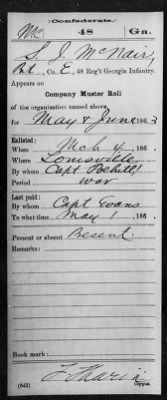 Confederate.
Mc 48 Ga.
S. J. McNair,
Co. E, 48 Reg't Georgia Infantry.
Appears on
Company Muster Roll
of the organization named above,
for May & June 1863
Enlisted:
When Mch 4, 186 .
Where Louisville,
By whom Capt
Period war
Last paid:
By whom Capt Evans
To what time May 1, 186 .
Present or absent Present
Remarks:
Book mark:
(642) Copyist.